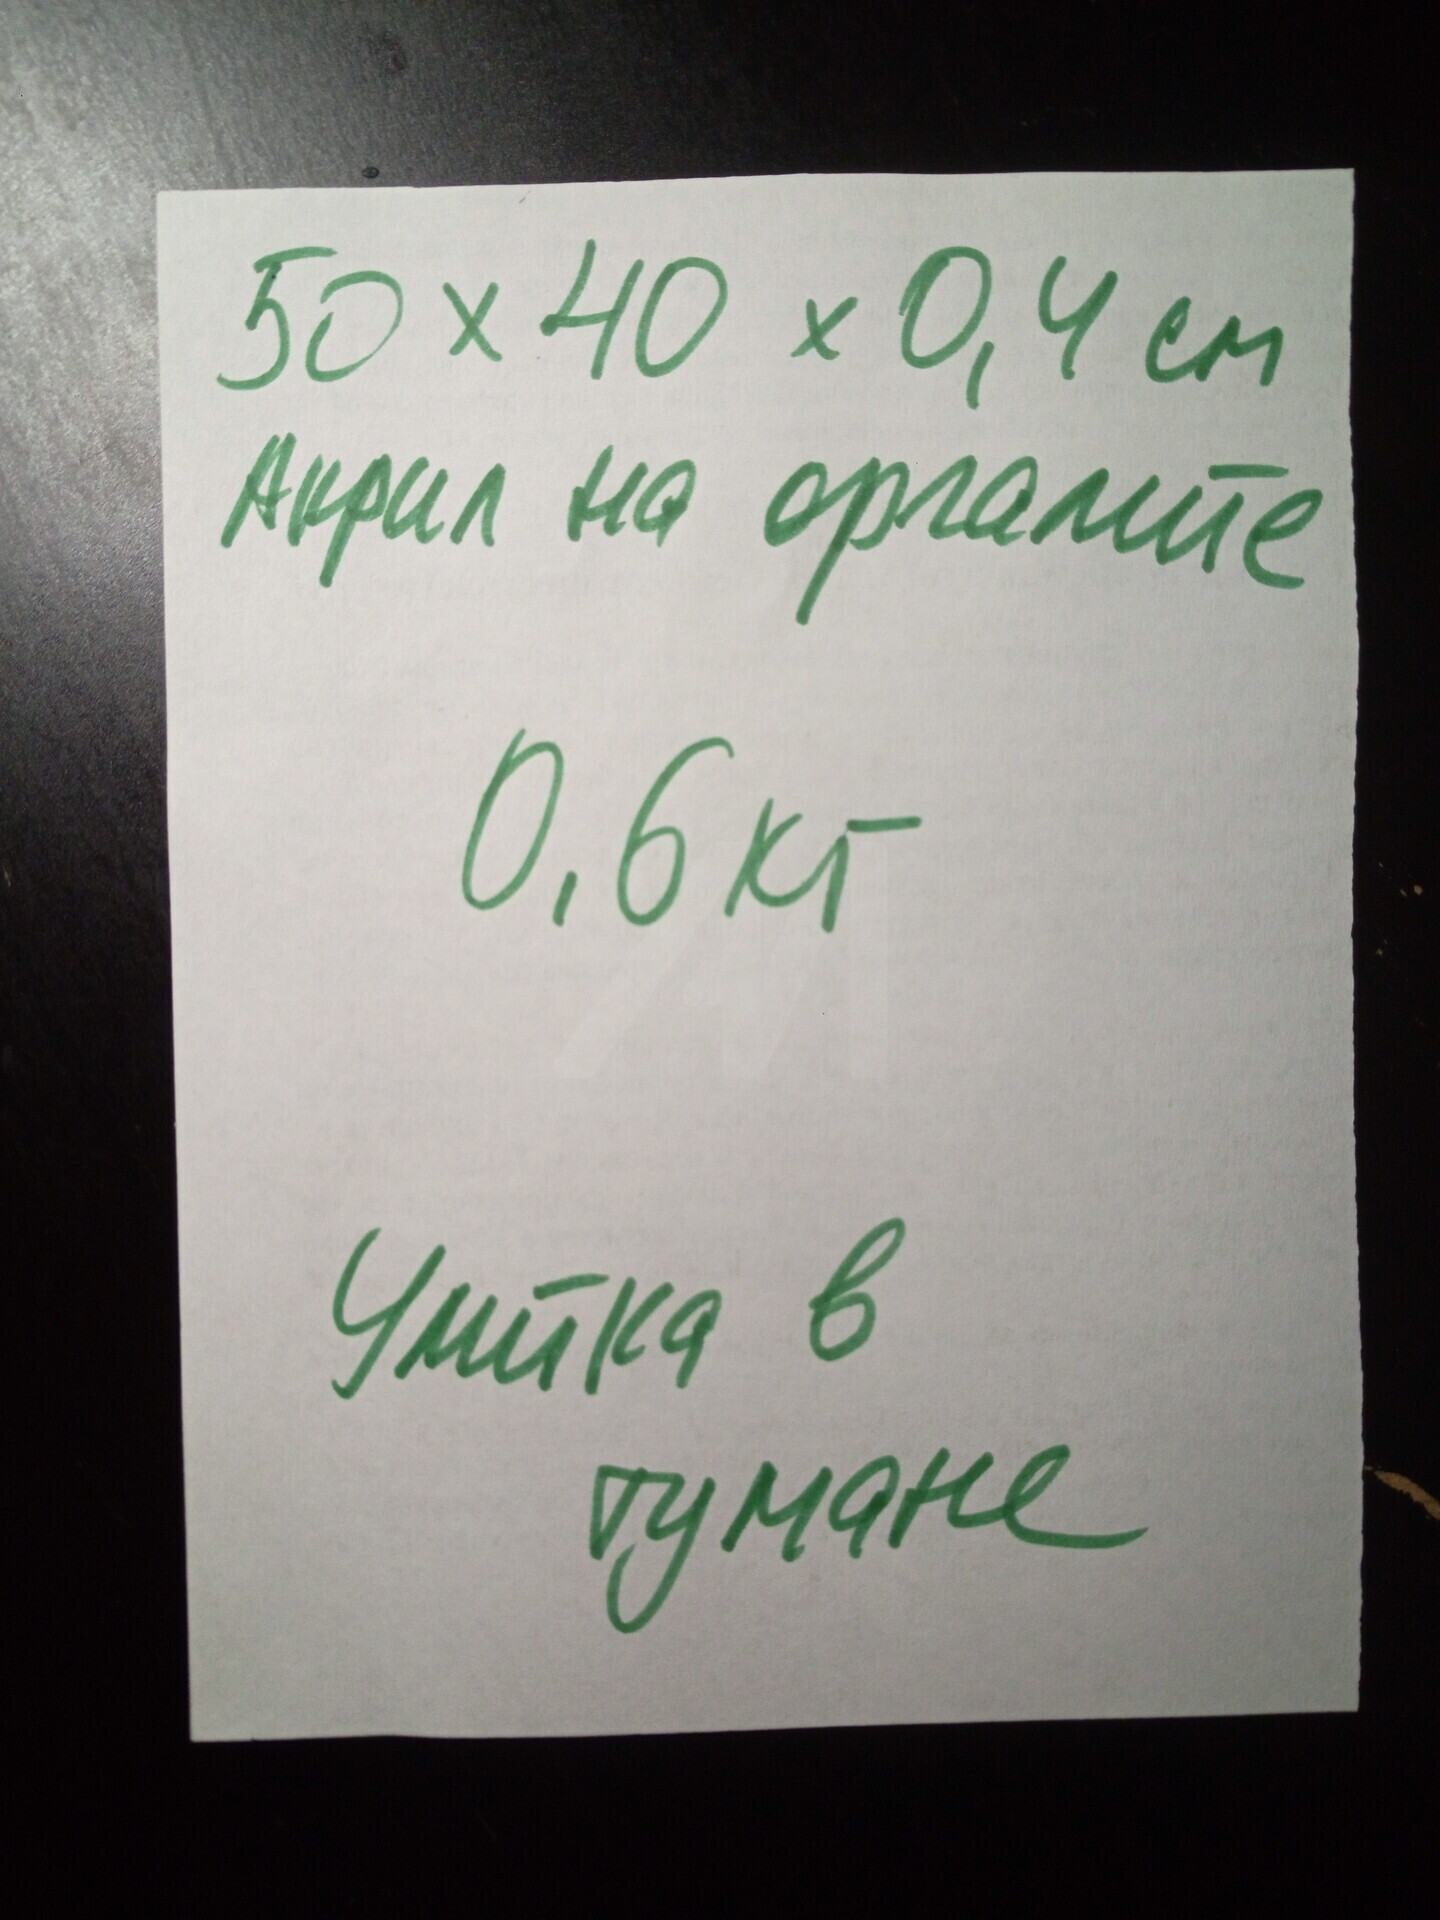 50 x 40 x 0,4 см
Акрил на оргалите
0,6 кг
Улитка в
тумане